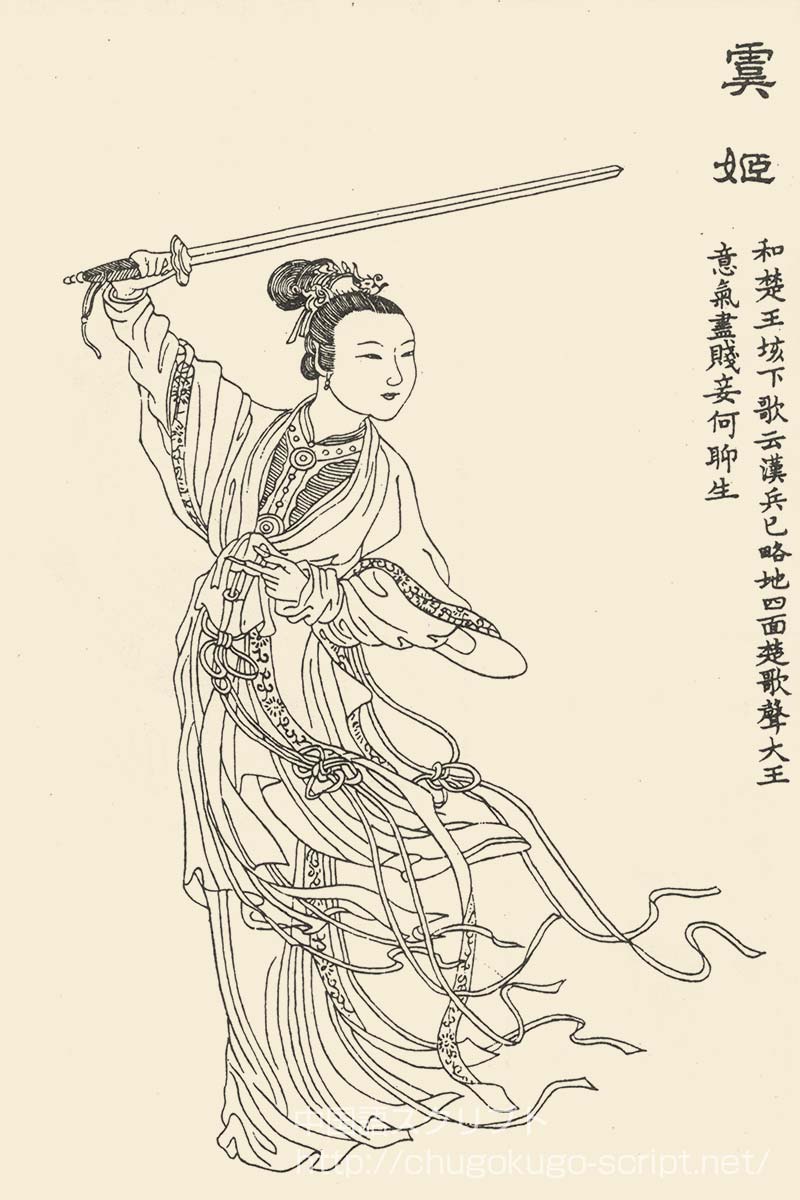 虞姬
和楚王垓下歌云漢兵已略地四面楚歌聲大王
意氣盡賤妾何聊生
中国語スクリプト
http://chugokugo-script.net/